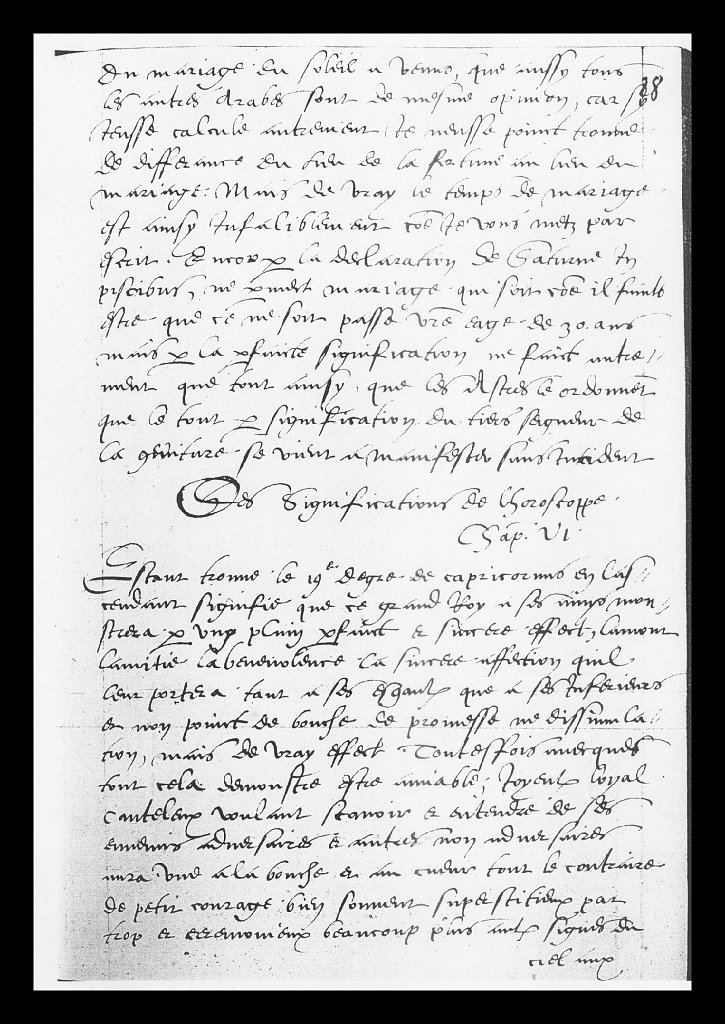 du mariage du soleil a venus, que aussy tous
28
les autres Arabes sont de mesme opinion, car se
Jeusse calcule autrement, Je neusse poinct trouve
de differance du lieu de la fortune au lieu du
mariage. Mais de vray le temps de mariage
est ainsy Infaliblement cõe Je vous metz par
escrit. Encor la declaration de Saturne In
piscibus, ne mariage qui soit cõe il fault
estre que ce ne soit passe vre eage de 30. ans
mais p la pfaicte signification ne faict autre-
ment que tout ainsy, que les Astres le ordonnent
que le tout p signification du tiers seigneur de
la geniture se vient a manifester sans Incident
Des Significations de lhoroscoppe.
Chap. VI.
Estant trouve le 19e degre de capricornus en las-
cendant signifie que ce grand Roy a ses amys mon-
strera p ung plain pfaict et sincere effect, lamour
lamitie la benevolence la sincere affection quil
leur portera tant a ses esgaulx que a ses Inferieurs
et non poinct de bouche de promesse ne dissimula-
cion, mais de vray effect. Toutesfois avecques
tout cela demonstre estre amiable, Joyeulx loyal
Cauteleux voulant scavoir et entendre de ses
ennemis adversaires et autres non adversaires
aura une a la bouche et au cueur tout le contraire
de petit courage bien souvent superstitieux par
trop et ceremonieux beaucoup plus aux signes du
ciel aux